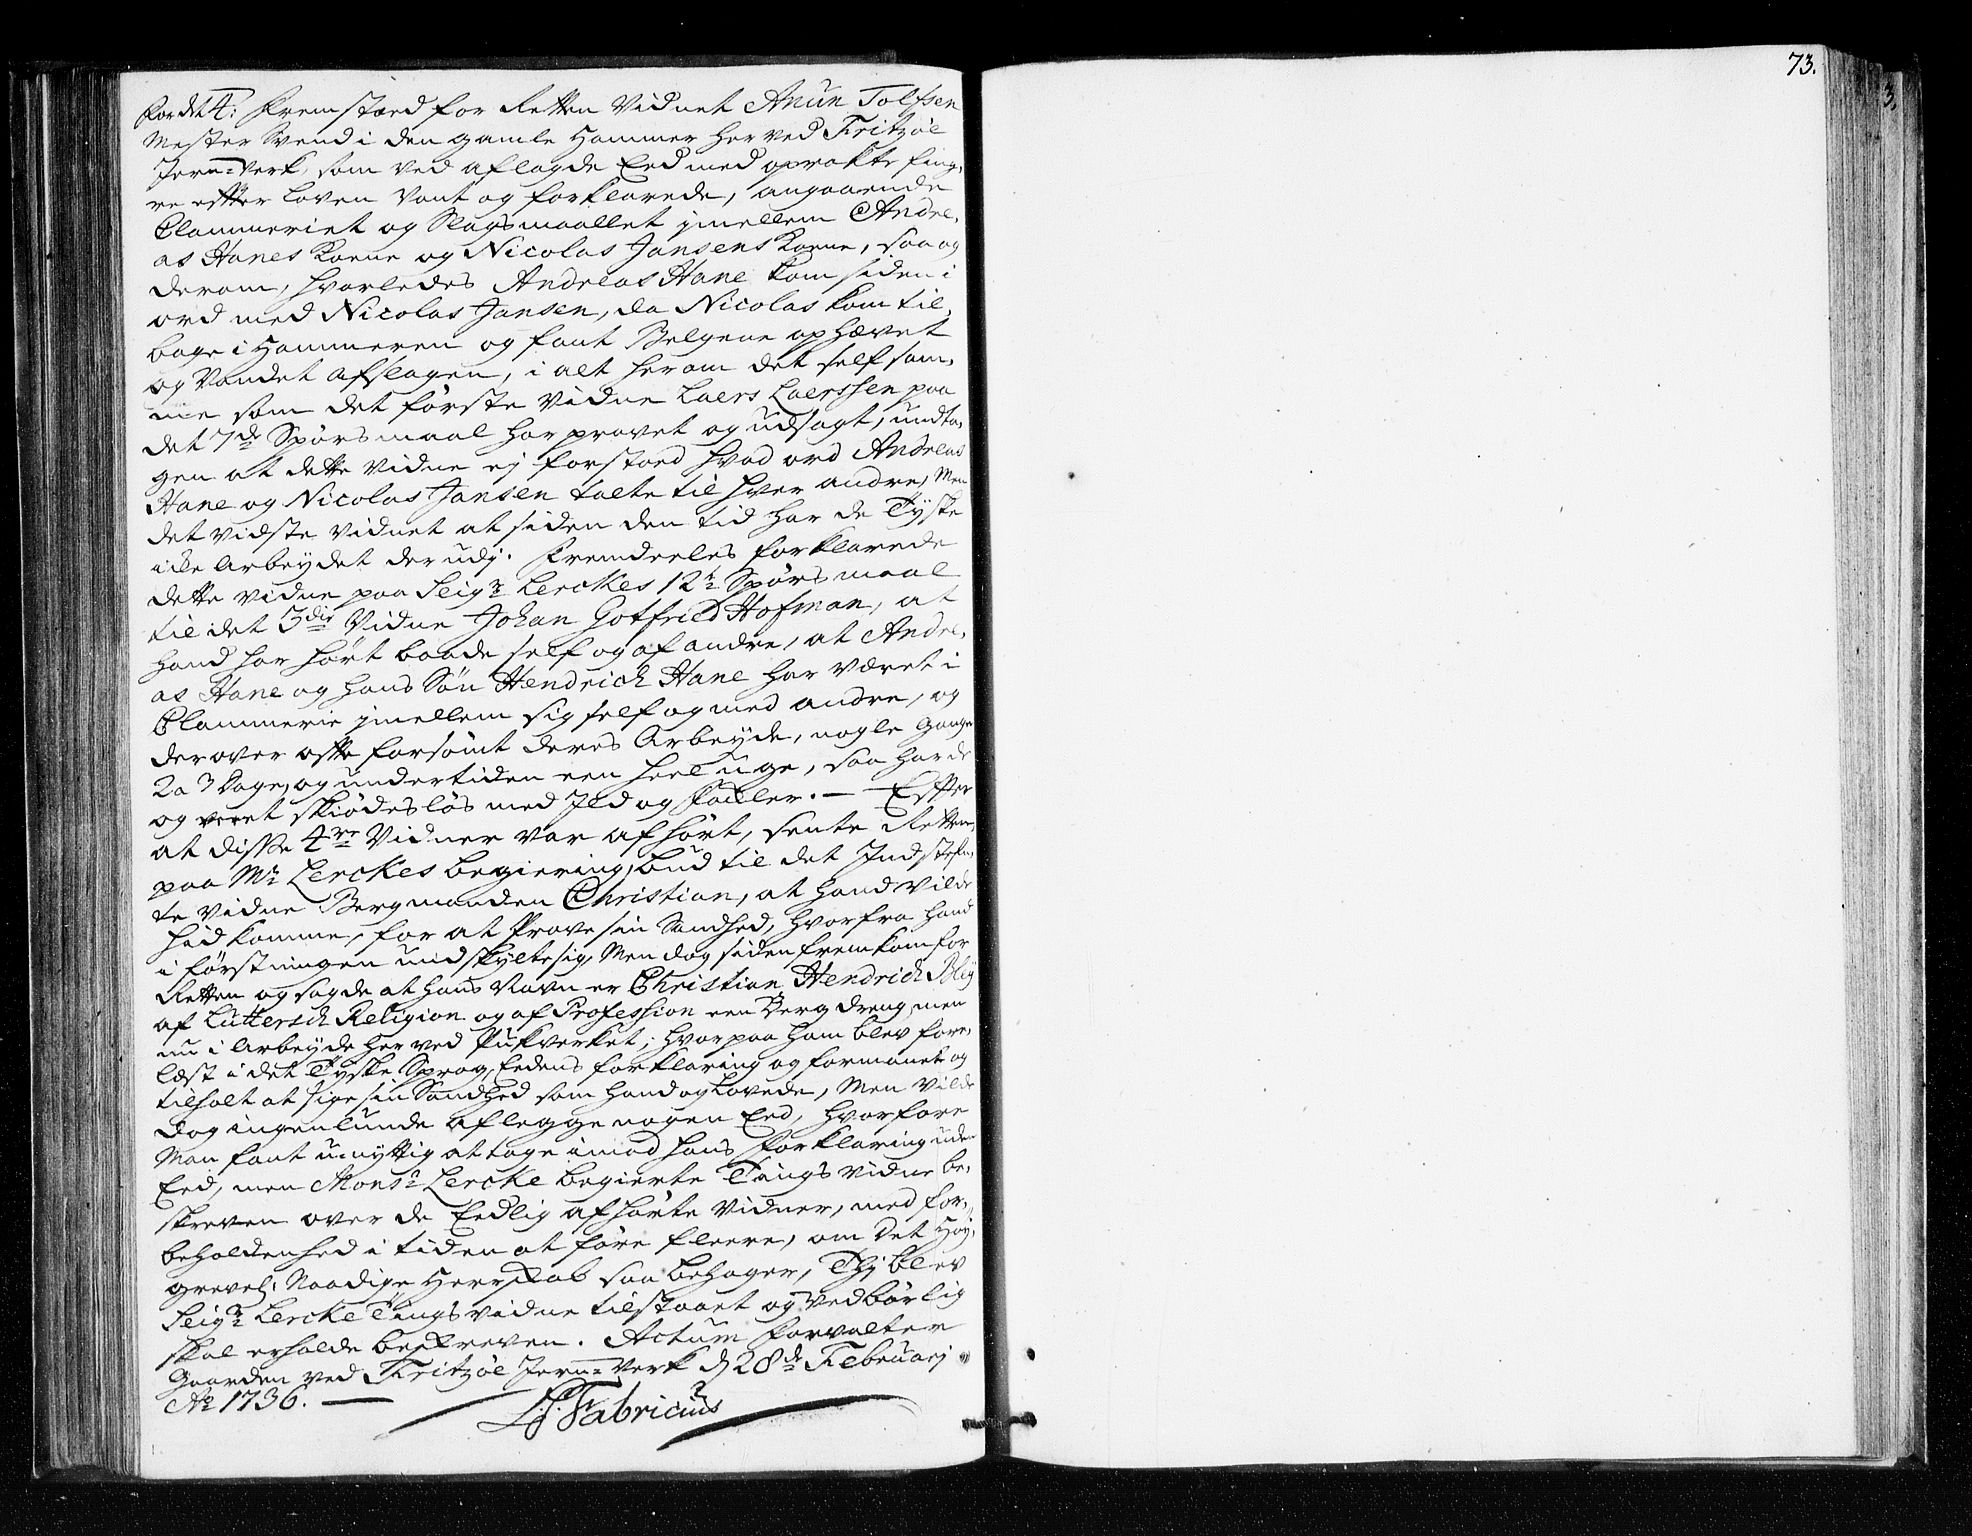 For det 4: Fremstoed for Retten Vidnet Anun Tolfsen
Mester Svend i den gamle Hammer her ved Fritzøe
Jern-Verk, som ved aflagde Eed med oprakte fing-
re efter Loven Vant og forklarede, angaaende
Clammeriet og Slagsmaallet jmellem Andre-
as Hanes Kone og Nicolas Jansens Kone, saa og
derom, hvorledes Andreas Hane kom siden i
ord med Nicolas Jansen, da Nicolas kom til-
bage i Hammeren og fant Belgene ophævet
og Vandet afslagen, i alt herom det self sam-
me som det første Vidne Laers Laerssen paa
det 7de Spørsmaal har provet og udsagt, undta-
gen at dette Vidne ej forstoed hvad ord Andreas
Hane og Nicolas Jansen talte til hver andre, Men
det vidste Vidnet at siden den tid har de Tyske
icke Arbeydet derudj. Fremdeeles forklarede
dette Vidne paa Seigr Lerckes 12te Spørsmaal
til det 3die Vidne Johan Gotfried Hofman, at
hand har hørt baade self og af andre, at Andre-
as Hane og hans Søn Hendrich Hane har været i
Clammerie jmellem sig self og med andre, og
derover ofte forsømt deres Arbeyde, nogle Gange
2 a 3 Dage, og undertiden een heel uge, saa har de
og veret skiødesløs med Jld og Fakler. — Efter
at disse 4re Vidner var afhørt, sente Retten,
paa Mr Lerckes begiering, bud til det Indstefn-
te Vidne Bergmanden Christian, at hand vilde
hid komme, for at Prove sin Sandhed, hvorfra hand
i førstningen undskylte sig, Men dog siden fremkom for
Retten og sagde at hans Navn er Christian Hendrich Bley
af Luttersch Religion og af Profession een Berg dreng, men
nu i Arbeyde her ved Pukverket; hvorpaa ham blev fore-
læst i det Tyske Sprog, Eedens forklaring og formanet og
tilholt at sige sin Sandhed som hand og Lovede, Men vilde
dog ingenlunde aflegge nogen Eed, hvorfore
Man fant unyttig at tage imod hans forklaring uden
Eed, men Monsr Lercke begierte Tings Vidne be-
skreven over de Eedlig afhørte Vidner, med for-
beholdenhed i tiden at føre fleere, om det Høy-
grevel: Naadige Herskab saa behager, Thj blev
Seigr Lercke Tings vidne tilstaaet og Vedbørlig
skal erholde beskreven. Actum Forvalter
Gaarden ved Fritzøe Jern-Verk d 28de Februarj
Ao 1736. —
Fabricius
73.
3.